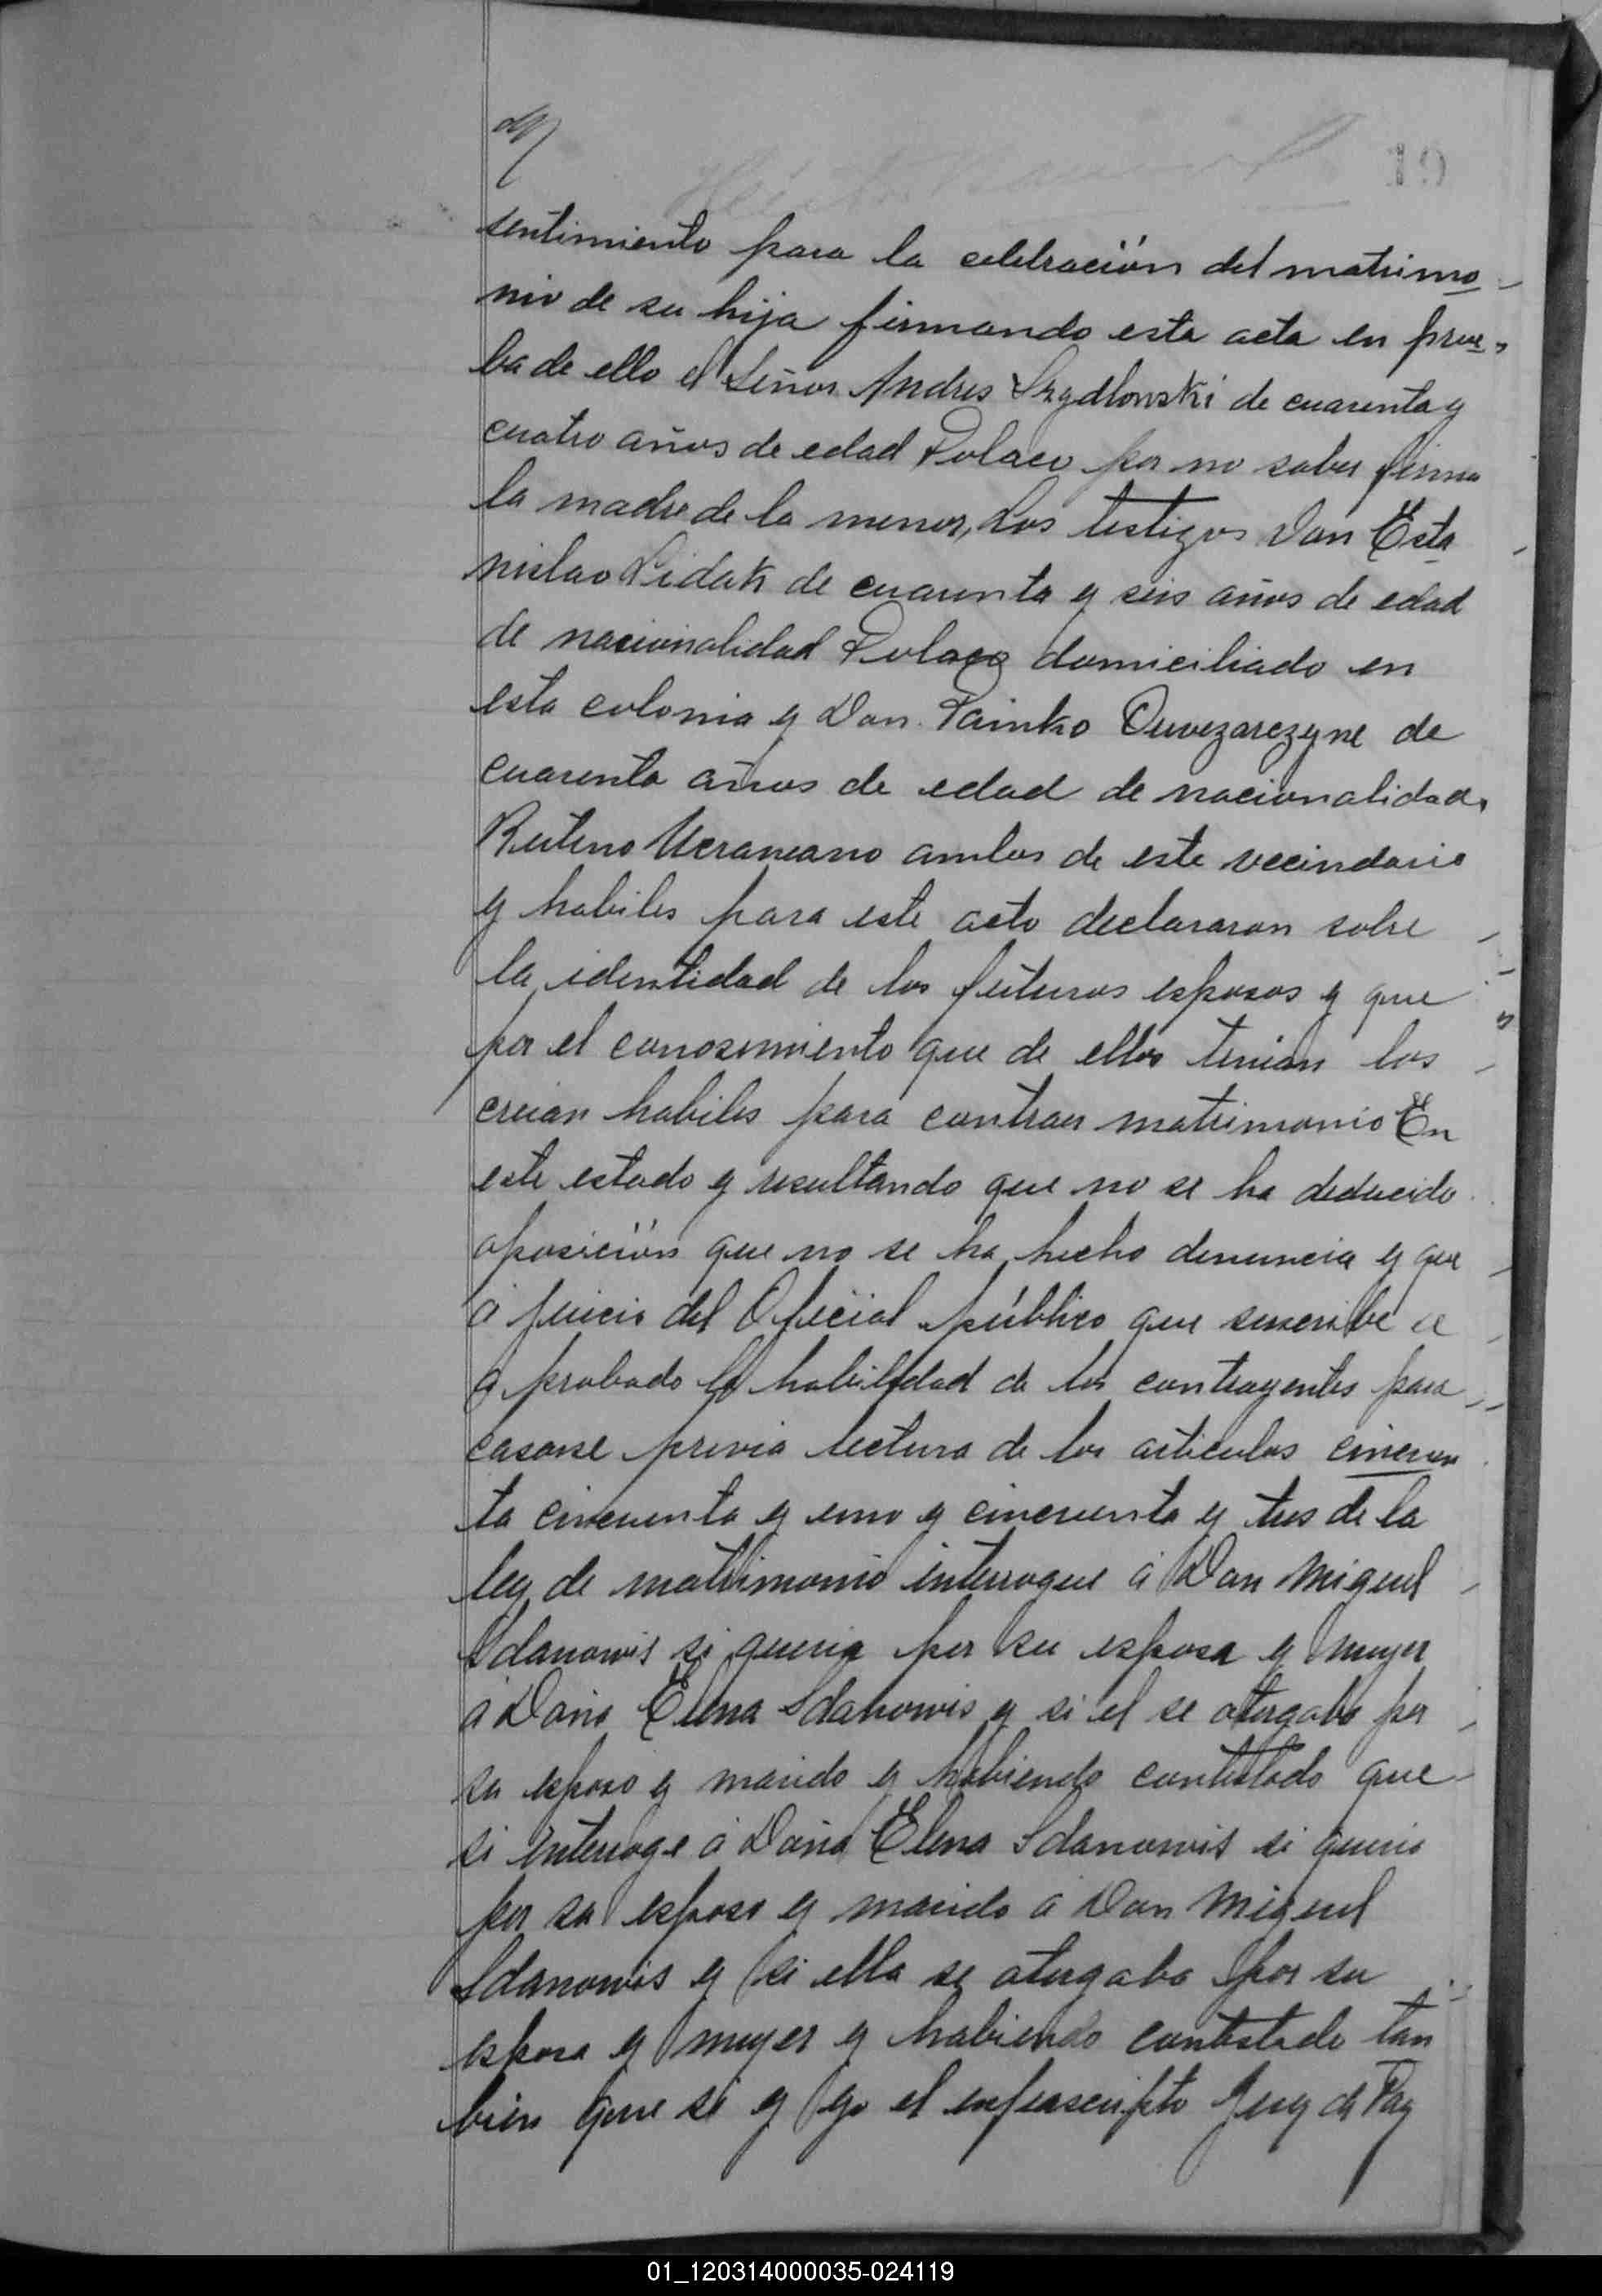 19
sentimiento para la celebración del matrimo
nio de su hija firmando esta acta en prue
ba de ello el Señor Andres Szydlowski de cuarenta y
cuatro años de edad Polaco por no saber firma
la madre de la menor, Los testigos Don Esta
nislao Lidak de cuarenta y seis años de edad
de nacionalidad Polaco domiciliado en
esta colonia y Don Painko Ouvezarezyne de
cuarenta años de edad de nacionalidad
Ruteno Ucraneano ambos de este vecindario
y habiles para este acto declararon sobre
la identidad de los futuros esposos y que
por el conosimiento que de ellos tenian los
creian habiles para contraer matrimonio En
este estado y resultando que no se ha deducido
oposición que no se ha hecho denuncia y que
á juicio del Oficial público que suscribe se
a probado la habilidad de los contrayentes para
casarse previa lectura de los articulos cincuen
ta cincuenta y uno y cincuenta y tres de la
ley de matrimonio interrogue á Don Miguel
Sdanowis si queria por su esposa y muyer
á Doña Elena Sdanowis y si el se otorgaba por
su esposo y marido y habiendo contestado que
si interroge á Doña Elena Sdanowis si queria
por su esposo y marido á Don Miguel
Sdanowis y si ella se otorgaba por su
esposa y muyer y habiendo contestado tan
bien que si y yo el enfrascripto Juez de Paz
01_120314000035-024119